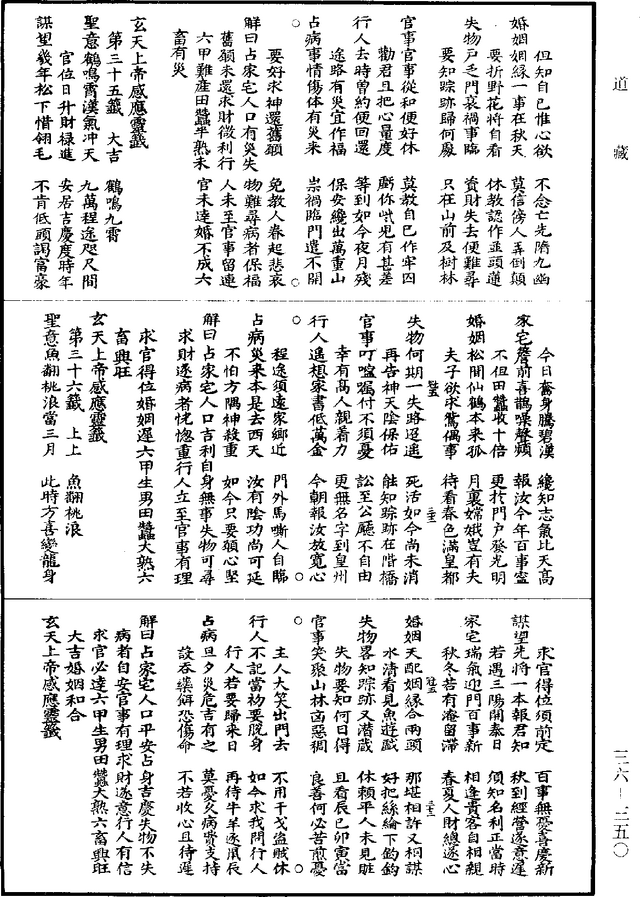 道藏
但知自己惟心欲　不念亡先隋九幽
婚姻姻緣一事在秋天　莫信傍人弄倒顛
要折野花將自看　休教認作並頭蓮
失物戸之門衰禍事臨　資財失去便難尋
要知踪跡歸何處　只在山前及樹林
官事官事從和便好休　莫教自己作牢囚
勸君且把心量度　斷你呲兇有甚差
行人去時曾約便回還　等到如今夜月殘
途路有災宜作福　保安纔出萬重山
占病事情傷体有災來　祟禍臨門還不開
要好求神還舊願　免教人眷起悲哀
○
解曰占家宅人口有災失　物難尋病者保福
舊願未還求財微利行　人未至官事留連
六甲難產田蠶半熟未　官未達婚不成六
畜有災
玄天上帝感應靈籤
第三十五籤　大吉　鶴鳴九霄
聖意鶴鳴霄漢氣冲天　九萬程途咫尺間
官位日升財禄進　安居吉慶度時年
謀望幾年松下惜翎毛　不肯低頭謁富豪
今日奮身騰碧漢　纔知志氣比天高
家宅簷前喜鵲噪聲頻　報汝今年百事寔
不但田蠶收十倍　更於門户發光明
婚姻松間仙鶴本來孤　月裏嫦娥豈有夫
夫子欲求鸞偶事　待看春色滿皇都
失物何期一失路迢遙　死活如今尚未消
再告神天陰保佑　能知踪跡在階橋
官事叮嚀囑付不須憂　訟至公廳不自由
幸有高人親着力　更無名字到皇州
行人遥想家書低萬金　今朝報汝放寬心
程途須遠家鄉近　門外馬嘶人自臨
占病災來本是去西天　汝有陰功尚可延
不怕方隅神殺重　如今只要願心堅
○
解曰占家宅人口吉利自身無事失物可尋
求財遂病者恍惚重行人立至官事有理
求官得位婚姻遲六甲生男田蠶大熟六
畜興旺
玄天上帝感應靈籤
第三十六籤　上上　魚翻桃浪
聖意魚翻桃浪當三月　此時方喜變龍身
求官得位須前定　百事無憂喜慶新
謀望先將一本報君知　秋到經營遂意遲
若遇三陽開泰日　須知名利正當時
家宅瑞氣迎門百事新　相逢貴客自相親
秋冬若有淹留滯　春夏人財總遂心
婚姻天配姻緣合兩頭　那堪相許又桐謀
水清看見魚遊戲　好把絲綸下釣鈎
失物畧知踪跡又潛藏　休賴平人未見賍
失物要知何日得　且看辰巳卯寅當
官事笑聚山林面惡稠　良善何必苦煎憂
主人大笑出門去　不用干戈盜賊休
行人不記當初要脱身　如今求我問行人
行人若要歸來日　再待牛羊逐鼠辰
占病旦夕災危吉有之　莫憂久病貴支持
設吞藥餌恐傷命　不若收心且待遲
○
解曰占家宅人口平安占身吉慶失物不失
病者自安官事有理求財遂意行人有信
求官必達六甲生男田蠶大熟六畜興旺
大吉婚姻和合
玄天上帝感應靈籤
三六—三五〇